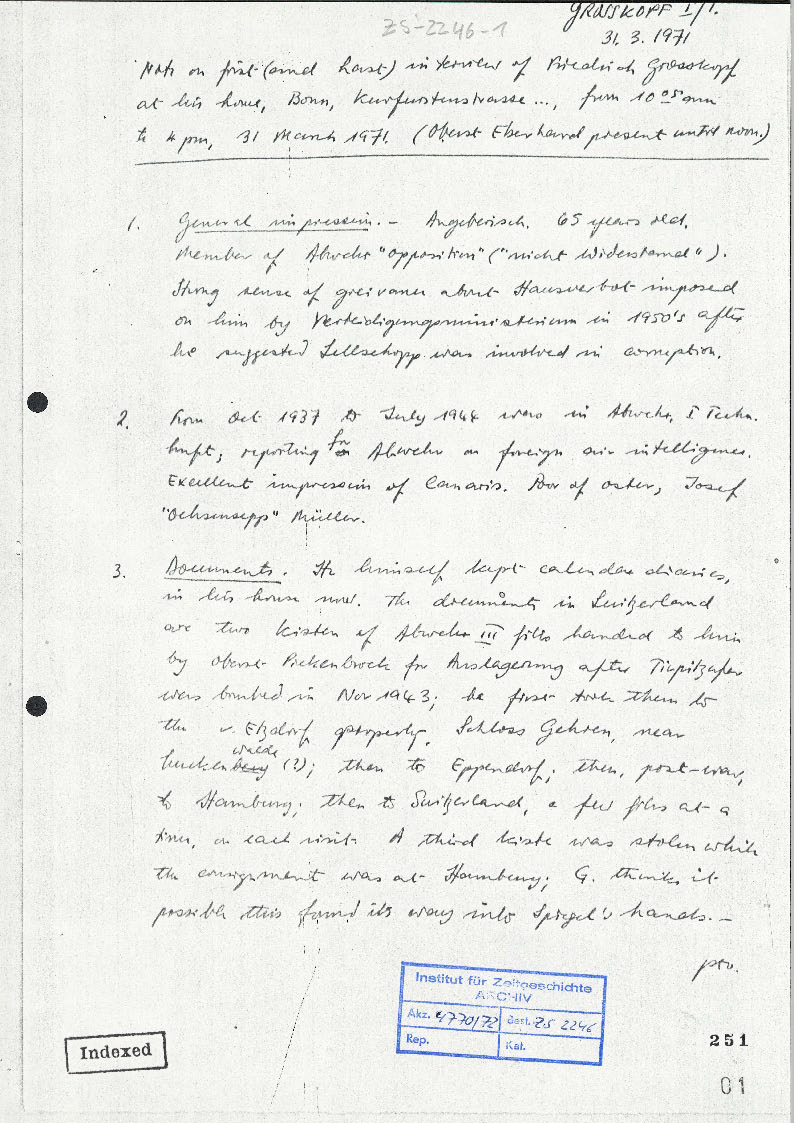 ZS-2246-1
GROSSKOPF I/1.
31.3.1971
Note on first (and last) interview of Friedrich Grosskopf
at his home, Bonn, Kurfurstenstrasse ..., from 10 05 am
to 4 pm, 31 March 1971. (Oberst Eberhard present until noon.)
1. General impression. – Angeberisch. 65 years old.
Member of Abwehr "opposition" ("nicht Widerstand").
Strong sense of greivance about Hausverbot imposed
on him by Verteidigungsministerium in 1950's after
he suggested Sellschopp was involved in corruption.
2. From Oct 1937 to July 1944 was in Abwehr, I Techn.
Luft; reporting for Abwehr on foreign air intelligence.
Excellent impression of Canaris. Poor of Oster, Josef
"Ochsensepp" Müller.
3. Documents. He himself kept calendar diaries,
in his house now. The documents in Switzerland
are two kisten of Abwehr III files handed to him
by Oberst Pickenbrock for Auslagerung after Tirpitzufer
was bombed in Nov 1943; he first took them to
the v. Etzdorf property, Schloss Gehren, near
walde
Lucken (?); then to Eppendorf; then, post-war,
to Hamburg; then to Switzerland, a few files at a
time, on each visit. A third kiste was stolen while
the consignment was at Hamburg; G. thinks it
possible this found its way into Spiegel's hands. –
pto.
Institut für Zeitgeschichte
ARCHIV
Akz. 4770/72 Best. ZS 2246
Rep. Kat.
Indexed
251
01